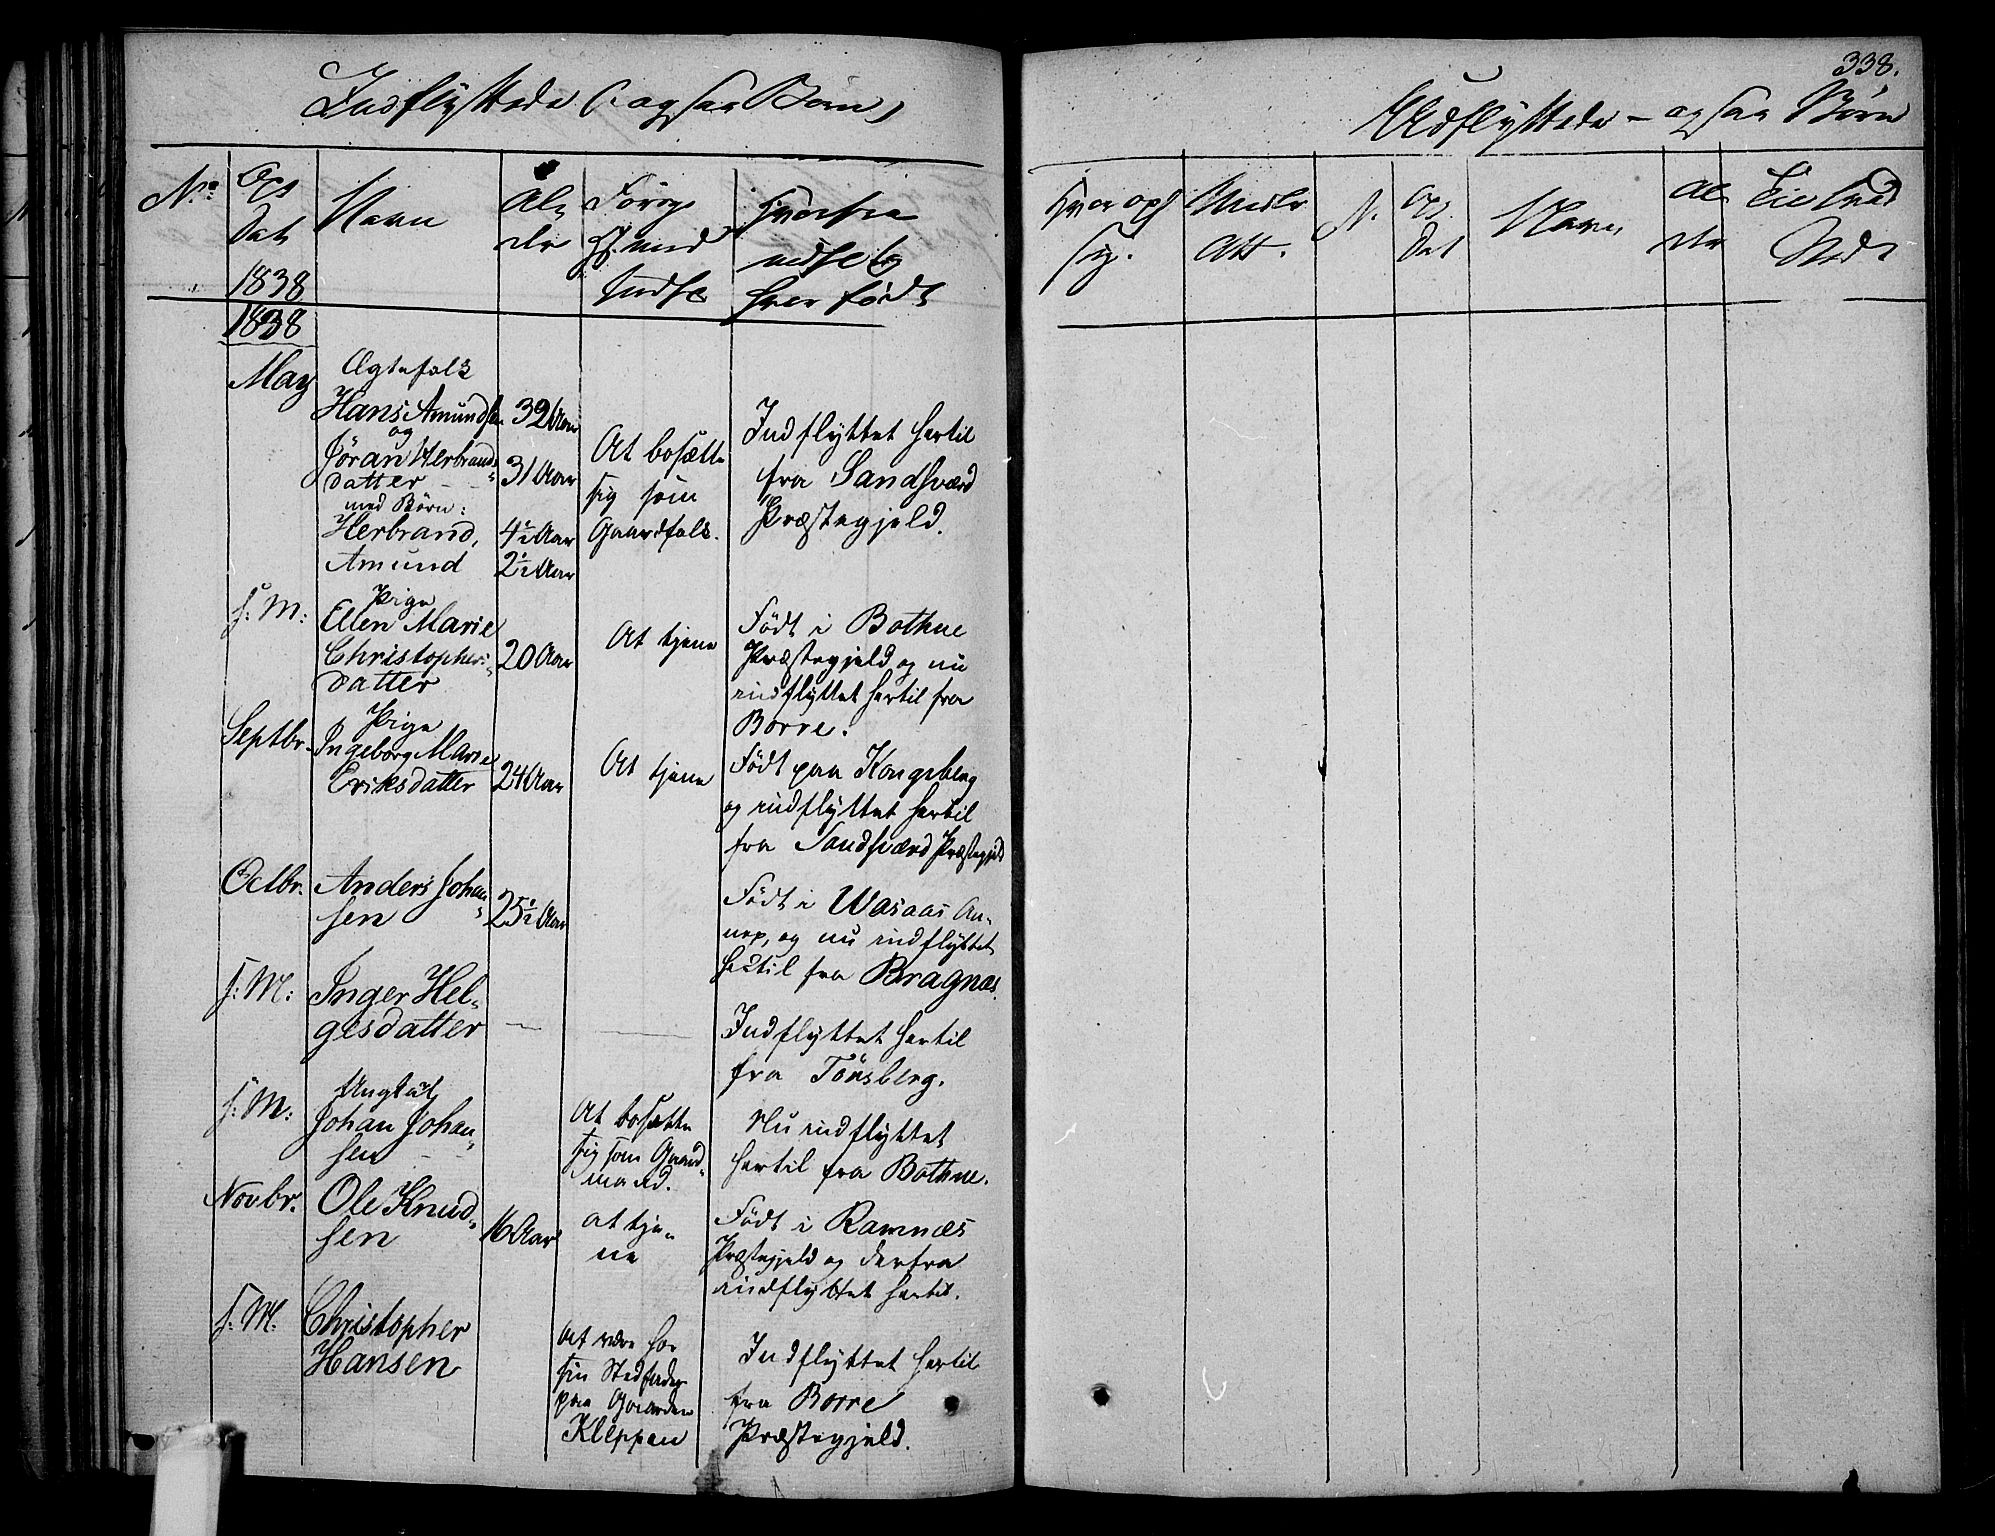 Indflyttede (ogsaa Børn)
No
Dat
1838
Navn
Al-
der
hvorfra
hvor født
1838
May
Ægtefolk
Hans Amundsen
og
Jøran Herbrands-
datter
med Børn:
Herbrand,
Amund
32 Aar
31 Aar
4½ Aar
2½ Aar
At bosætte
sig som
Gaardfolk.
Indflyttet hertil
fra Sandsværd
Præstegjeld.
s: M:
Pige
Ellen Marie
Christophers-
datter
20 Aar
At tjene
Født i Bothne
Præstegjeld og nu
indflyttet hertil fra
Borre.
Septbr.
Pige
Ingeborg Marie
Eriksdatter
24 Aar
At tjene
Født paa Kongsberg
og indflyttet hertil
fra Sandsværd Præstegjeld
Octbr.
Anders Johan-
sen
25½ Aar
Født i Wasaas An-
nex, og nu indflyttet
hertil fra Bragnæs.
s: M:
Inger Hel-
gesdatter
Indflyttet hertil
fra Tönsberg.
s: M:
Ungkarl
Johan Johan-
sen
At bosætte
sig som Gaard-
mand.
Nu indflyttet
hertil fra Bothne.
Novbr.
Ole Knud-
sen
16 Aar
at tje-
ne
Født i Ramnæs
Præstegjeld og derfra
indflyttet hertil.
s: M:
Christopher
Hansen
At være hos
sin Stedfader
paa Gaarden
Kleppan
Indflyttet hertil
fra Borre
Præstegjeld.
338.
Udflyttede - ogsaa Børn
Hvor opf
Anf.
N.
Dat
Navn
Al
der
Til hvad
Sted